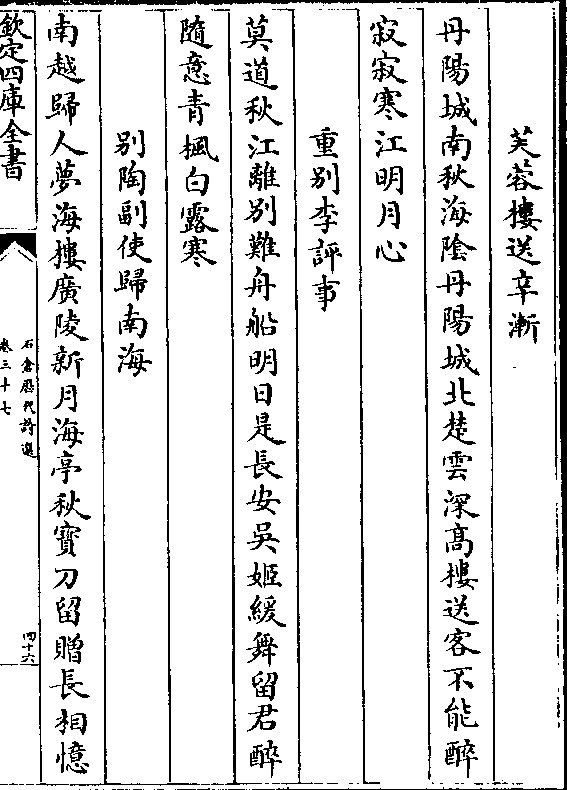 芙蓉樓送辛漸
丹陽城南秋海陰丹陽城北楚雲深髙樓送客不能醉
寂寂寒江明月心
重别李評事
莫道秋江離别難舟船明日是長安吳姬緩舞留君醉
隨意青楓白露寒
别陶副使歸南海
南越歸人夢海樓廣陵新月海亭秋寳刀留贈長相憶
欽定四庫全書
石倉歴代詩選
卷三十七
四十六